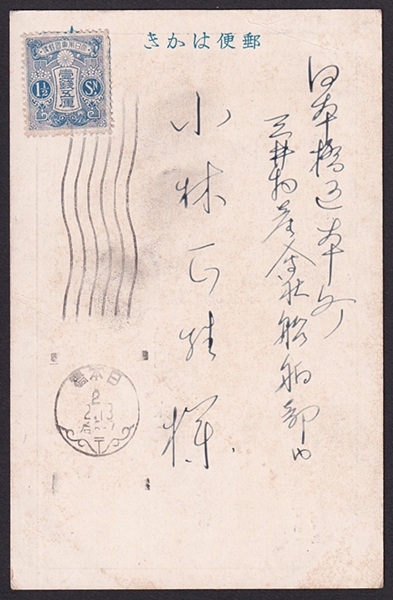 郵便はかき
日本橋区本町
三井物産会社船舶部内
小林正雄様
大日本帝国郵便
壹錢五厘
1½ Sn
日本橋
2
2.13